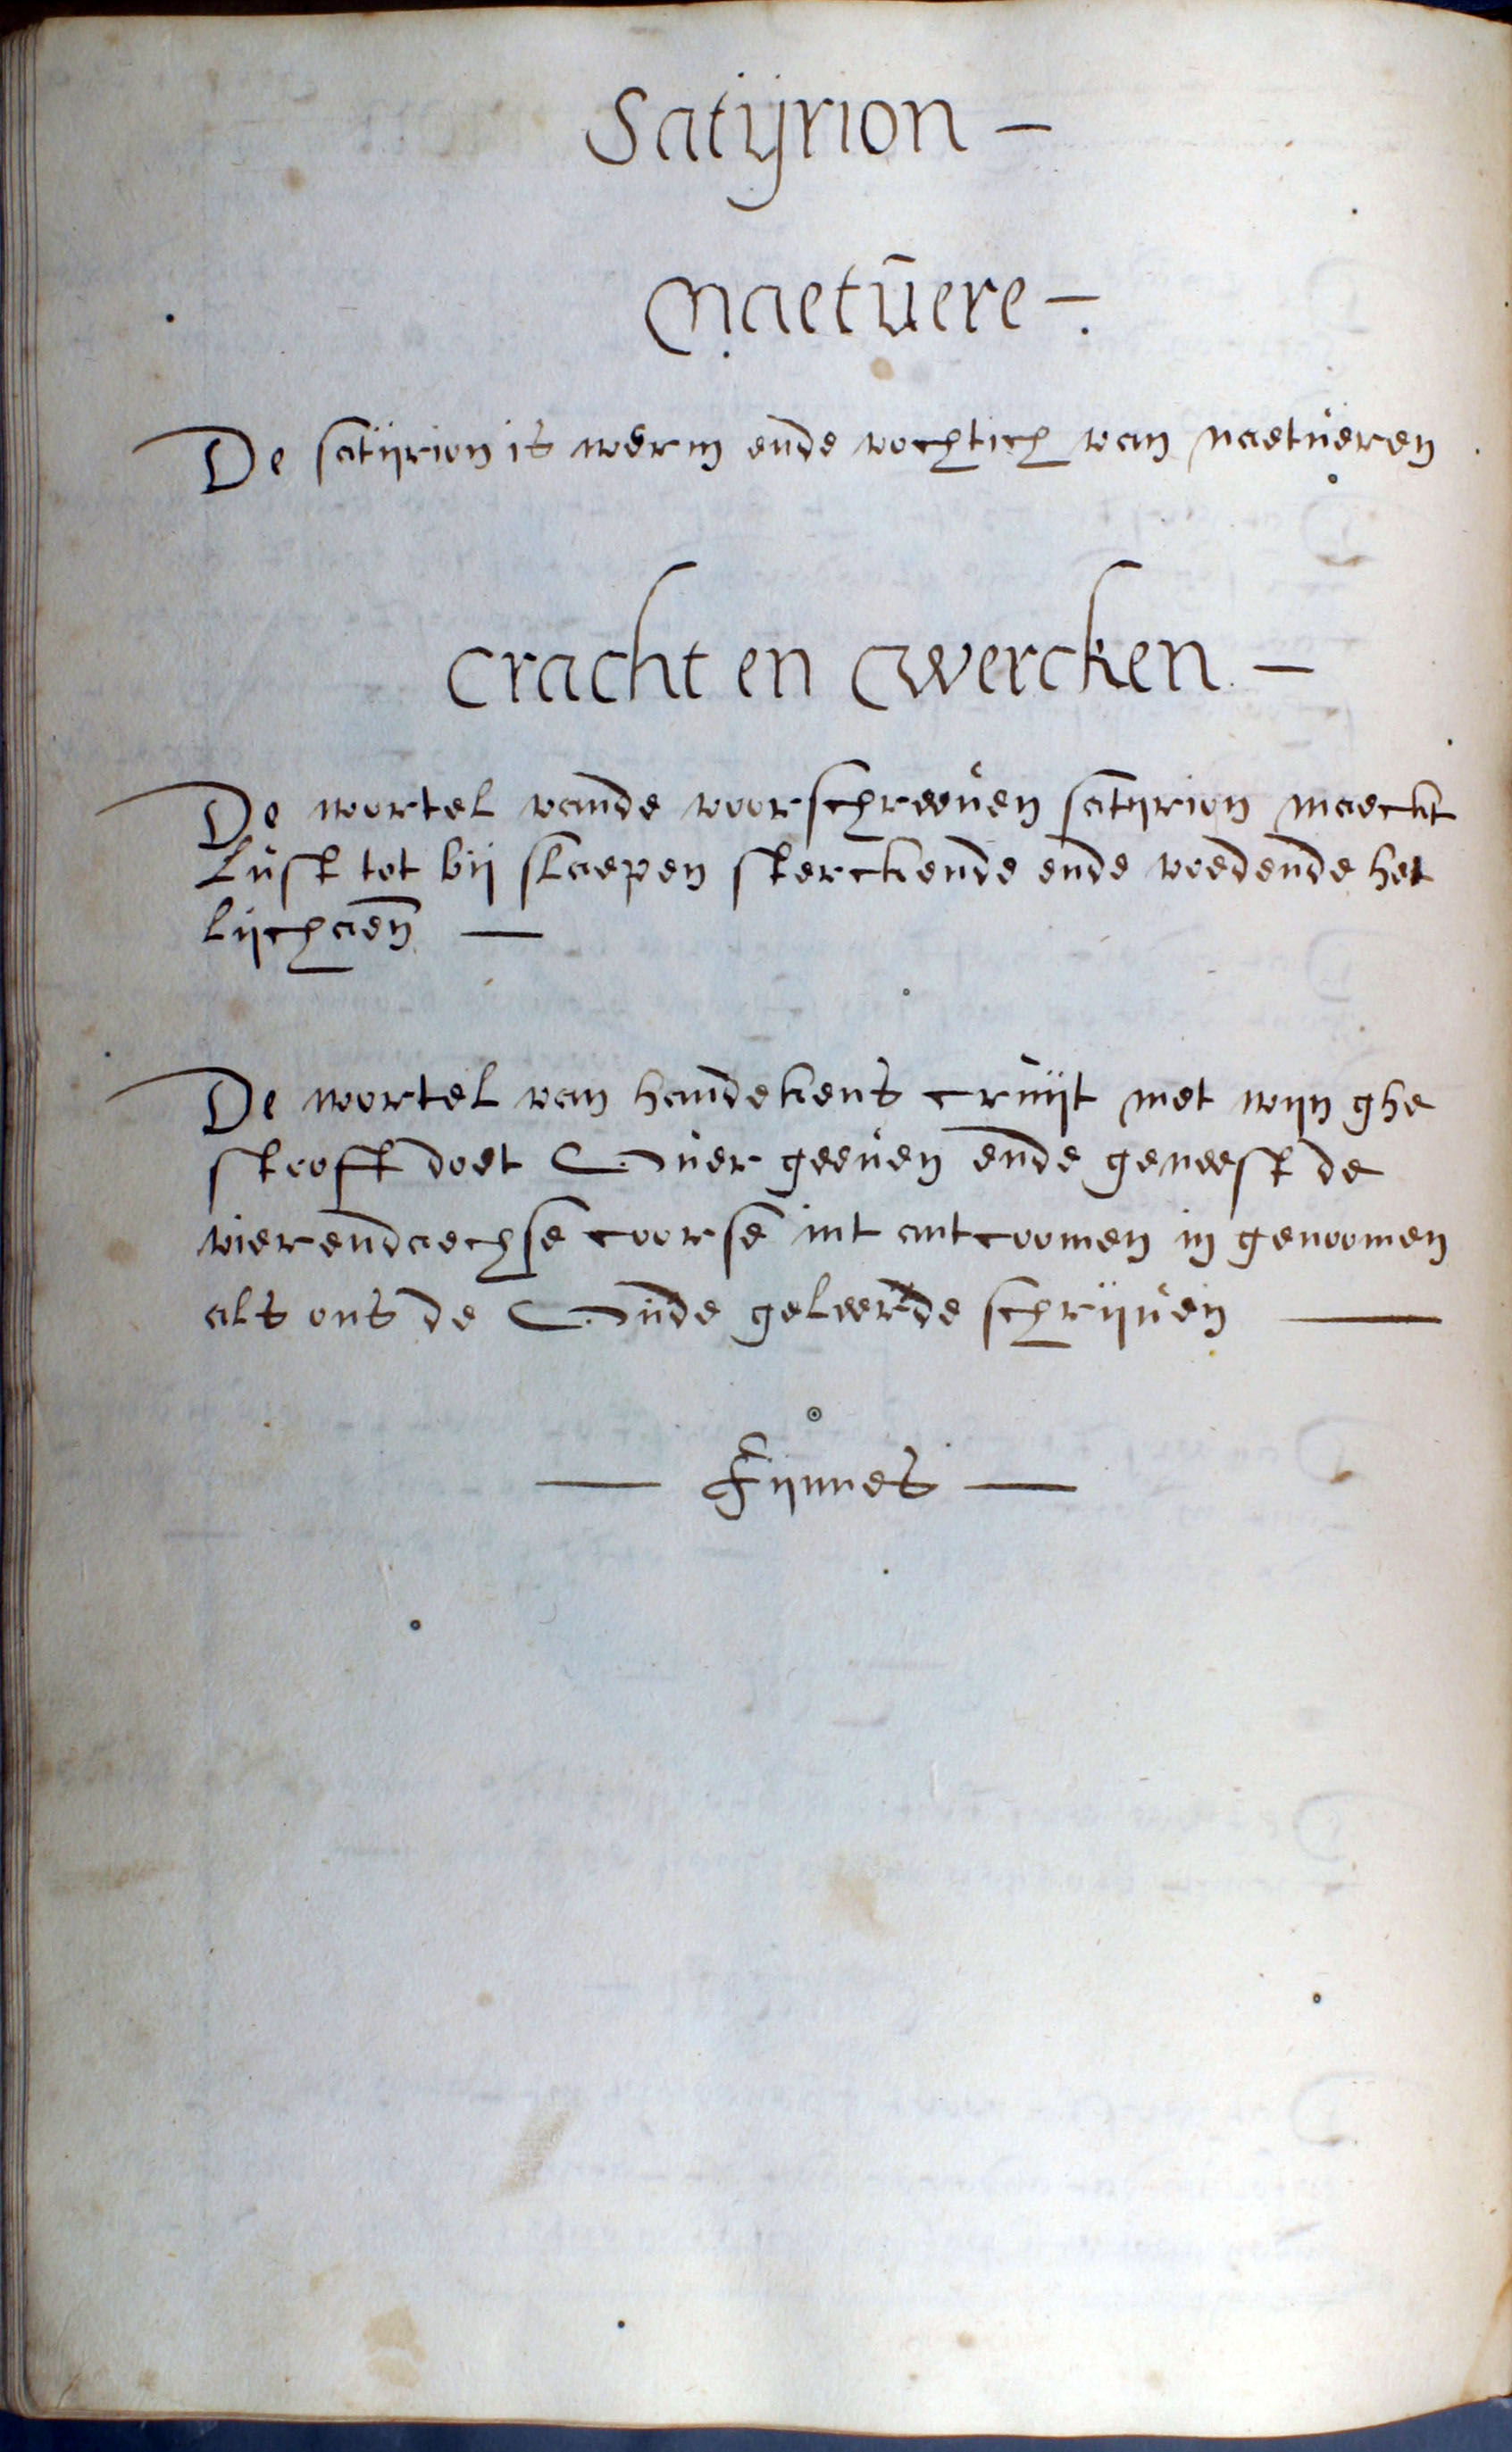 Satijrion —
Naetuere —
De satijrion is werm ende vochtich van naetueren
Cracht en wercken —
De wortel vande voorschreeuen satijrion maeckt
lust tot bij slaepen sterckende ende voedende het
lijchaem —
De wortel van handekens cruijt met wijn ghe
stooft doet Ouer geeuen ende geneest de
vierendaechse coorse int antcoomen in genoomen
als ons de Oude geleerde schrijuen —
— Fijnnes —